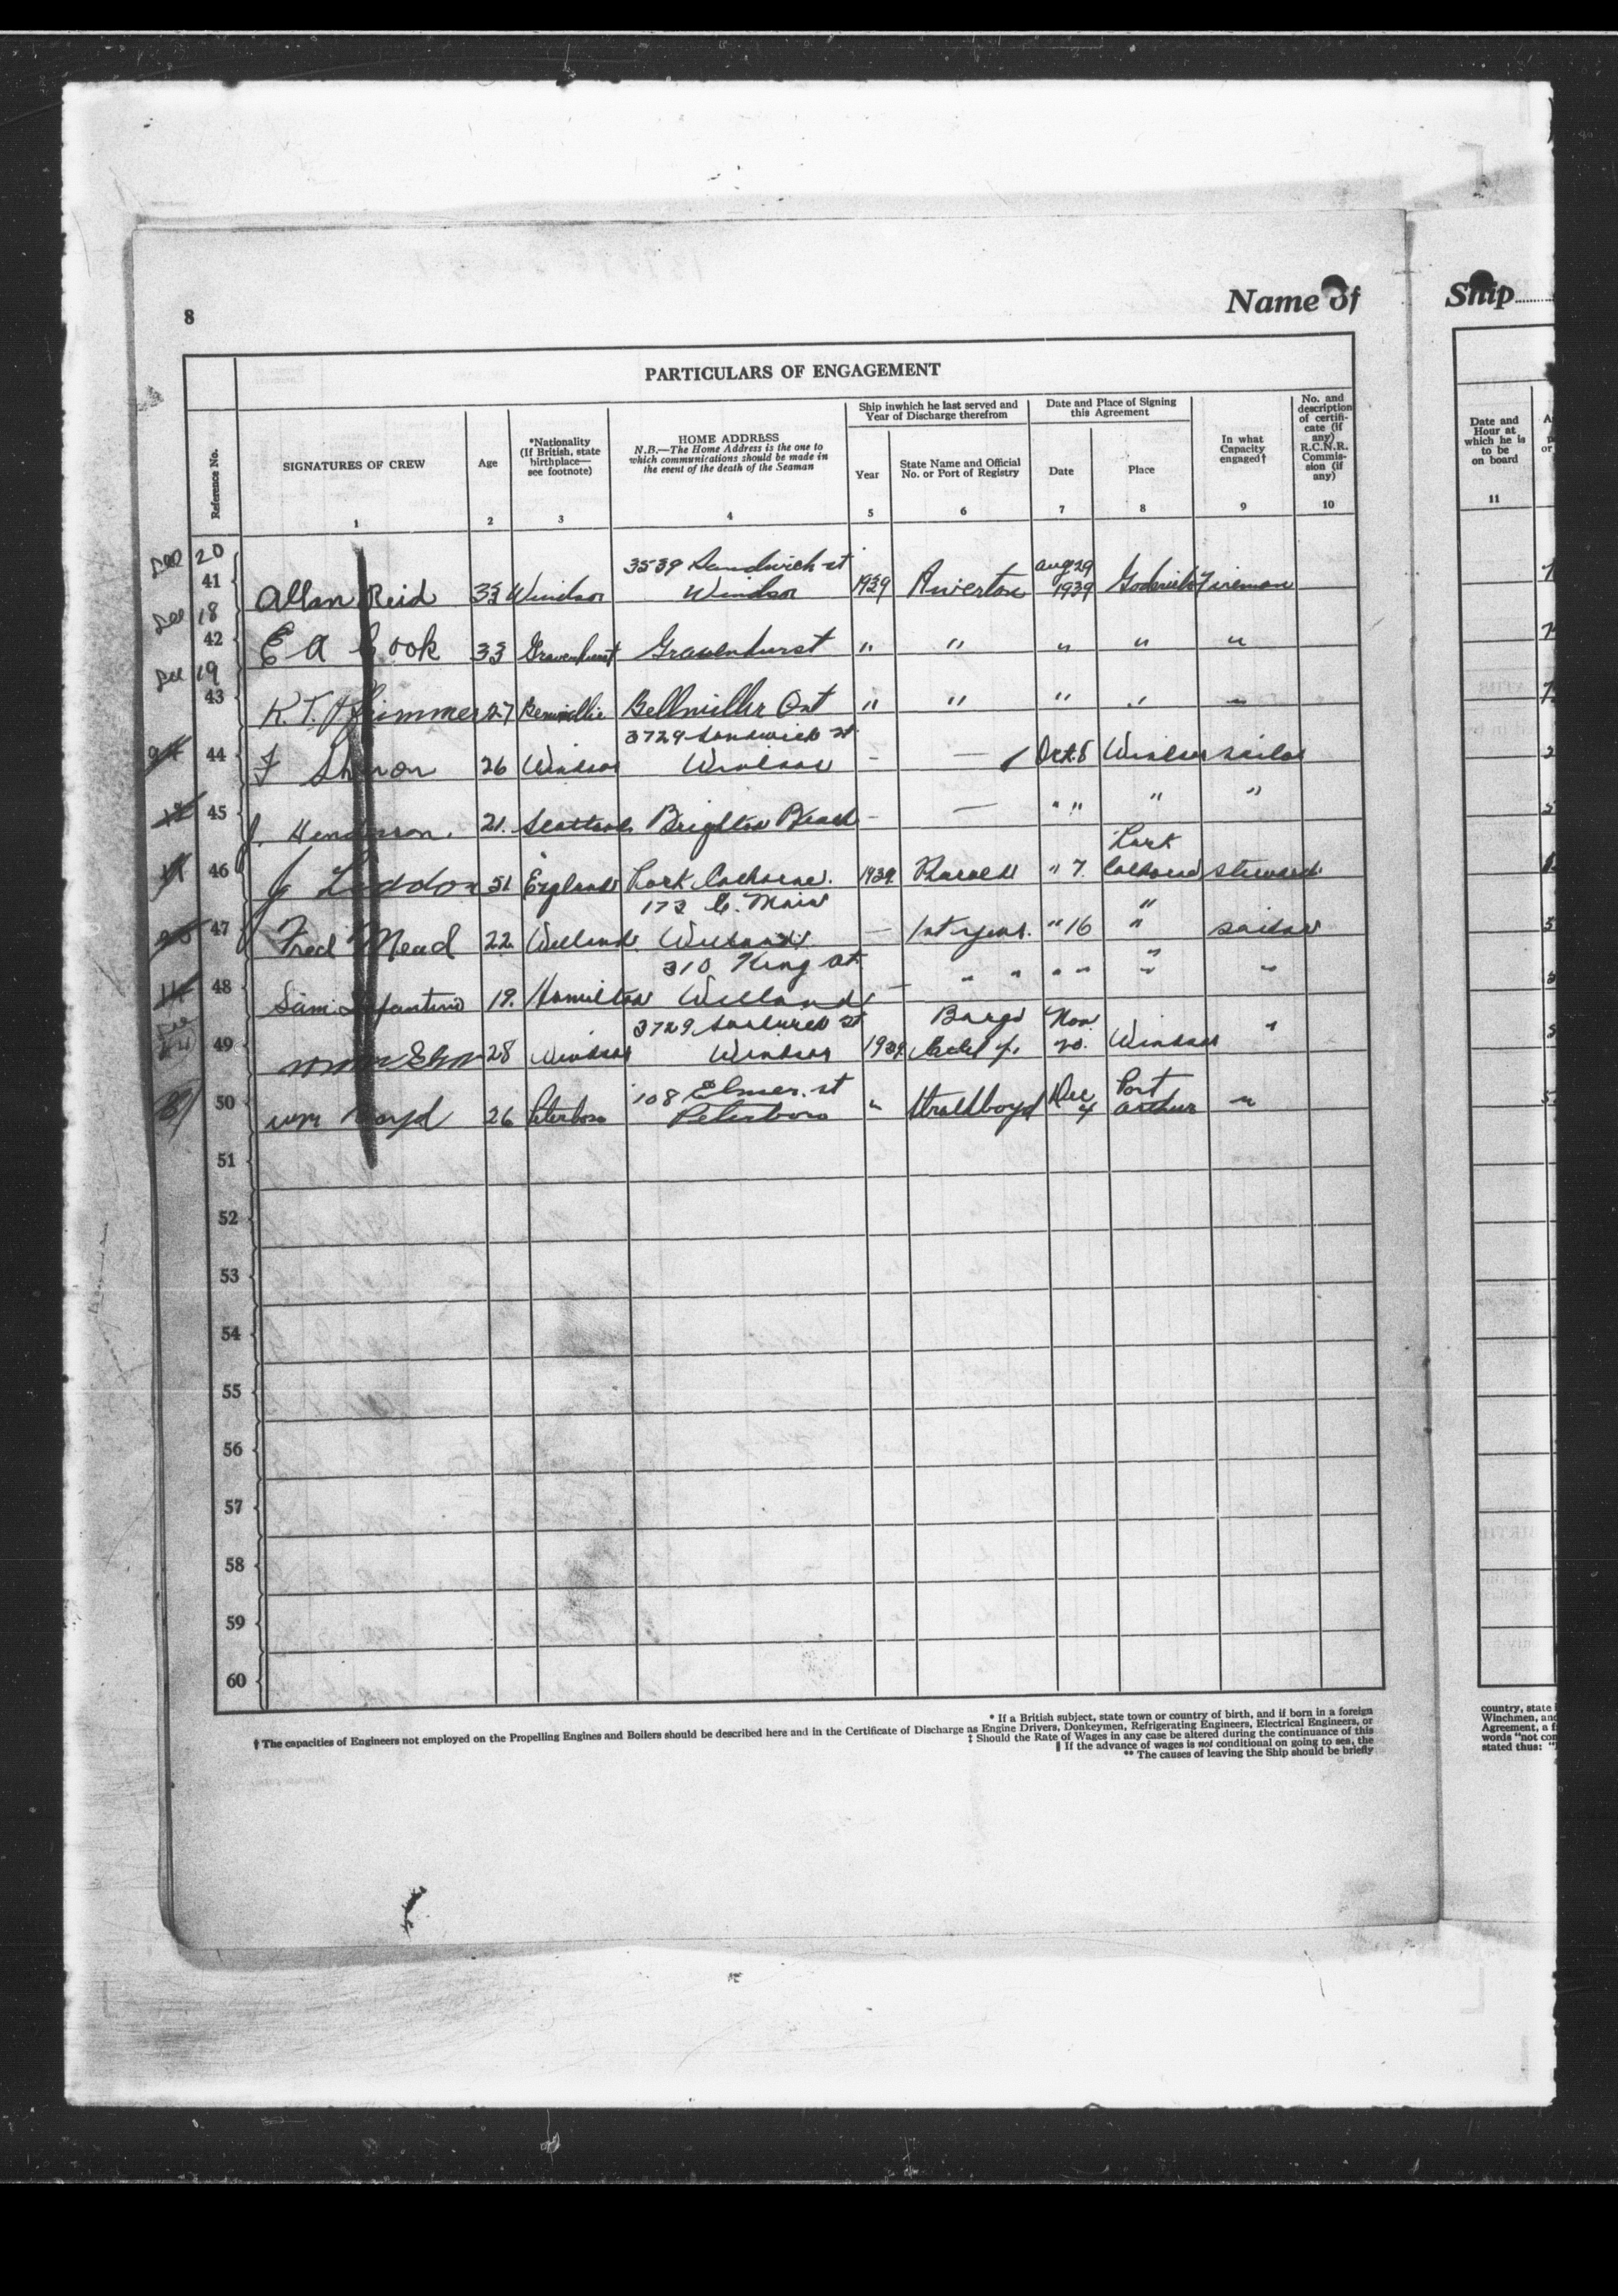 8
Name of
Ship
PARTICULARS OF ENGAGEMENT
Reference No.
SIGNATURES OF CREW
1
Age
2
*Nationality
(If British, state
birthplace—
see footnote)
3
HOME ADDRESS
N.B.—The Home Address is the one to
which communications should be made in
the event of the death of the Seaman
4
Ship inwhich he last served and
Year of Discharge therefrom
Year
5
State Name and Official
No. or Port of Registry
6
Date and Place of Signing
this Agreement
Date
7
Place
8
In what
Capacity
engaged†
9
No. and
description
of certifi-
cate (if
any)
R.C.N.R.
Commis-
sion (if
any)
10
Date and
Hour at
which he is
to be
on board
11
20
3539 Sandwich st
Aug 29
41 Allan Reid 33 Windsor Windsor 1939 1939 Goderich Fireman
18
42 E A Cook 33 Gravenhurst Gravenhurst " " " " "
19
43 27 Ont " " " "
3729 Sandwich st
44 F Sharon 26 Windsor Windsor - — Oct 5 Windsor sailor
45 J. Henderson. 21. Scotland Brighton Beach - — " " " "
Port
46 J Liddon 51 England Port Colborne. 1939 " 7. Colborne steward.
173 E. Main "
47 Fred Mead 22. Welland. Welland — 1st year. " 16 " sailor
310 King st. "
48 Sam Infantino 19. Hamilton Welland — " " " " " "
3729 Sandwich st Barge Nov
49 28 Windsor Windsor 1939 20. Windsor "
108 Elmer. st Dec Port
50 Wm Boyd 26 Peterboro Peterboro " 4 Arthur "
51
52
53
54
55
56
57
58
59
60
* If a British subject, state town or country of birth, and if born in a foreign
† The capacities of Engineers not employed on the Propelling Engines and Boilers should be described here and in the Certificate of Discharge as Engine Drivers, Donkeymen, Refrigerating Engineers, Electrical Engineers, or
‡ Should the Rate of Wages in any case be altered during the continuance of this
‖ If the advance of wages is not conditional on going to sea, the
** The causes of leaving the Ship should be briefly
country, state
Winchmen, and
Agreement, a
words "not
stated thus: